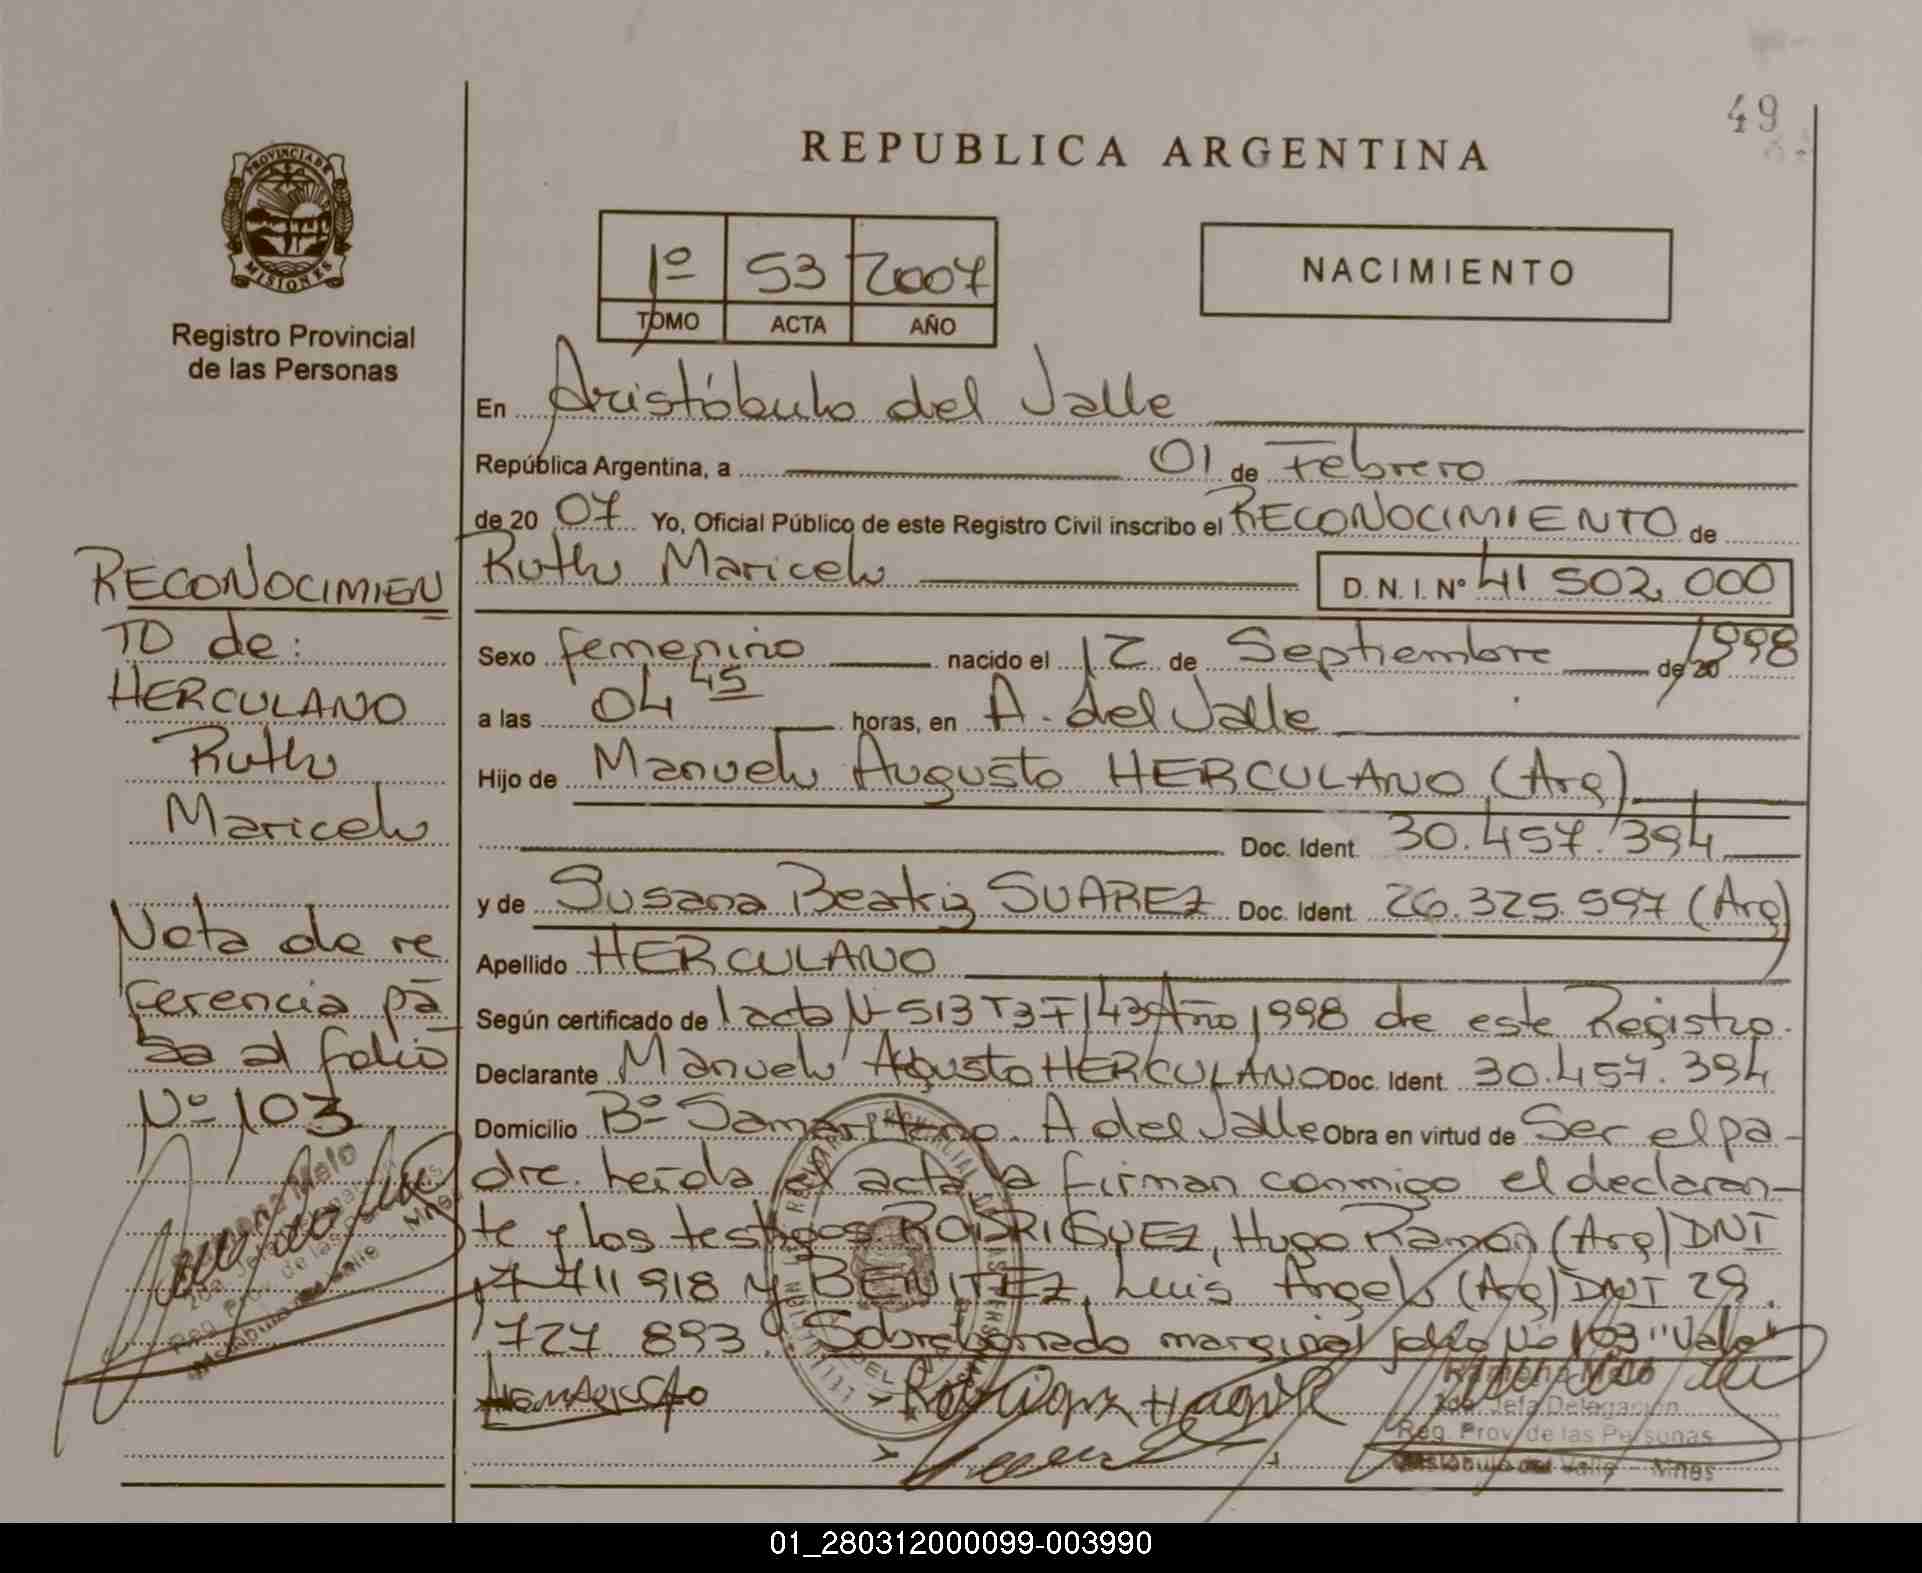 49
REPUBLICA ARGENTINA
PROVINCIA DE
MISIONES
Registro Provincial
de las Personas
1º 53 2007
TOMO ACTA AÑO
NACIMIENTO
En Aristóbulo del Valle
República Argentina, a 01 de Febrero
de 20 07 Yo, Oficial Público de este Registro Civil inscribo el RECONOCIMIENTO de
Ruth Maricel D. N. I. Nº 41 502. 000
Sexo femenino nacido el 12 de Septiembre de 20 1998
a las 04 45 horas, en A. del Valle
Hijo de Manuel Augusto HERCULANO (Arg)
Doc. Ident. 30.457.394
y de Susana Beatriz SUAREZ Doc. Ident. 26.325.597 (Arg)
Apellido HERCULANO
Según certificado de acta Nº 513 T3 F143 Año 1998 de este Registro.
Declarante Manuel Agusto HERCULANO Doc. Ident. 30.457.394
Domicilio Bº Samaritano. A del Valle Obra en virtud de Ser el pa-
dre. Leída el acta la firman conmigo el declaran-
te y los testigos RODRIGUEZ, Hugo Ramón (Arg) DNI
711 918 y BENITEZ, Luis Angel (Arg) DNI 29.
727 893. Sobreborrado marginal folio Nº 103 "Vale"
Ramona Melo
2da. Jefa Delegación
Reg. Prov. de las Personas
Aristóbulo del Valle - Mnes
RECONOCIMIEN
TO de:
HERCULANO
Ruth
Maricel
Nota de re
ferencia pa
sa al folio
Nº 103
Ramona Melo
2da. Jefa
Reg. Prov. de las
Aristóbulo del Valle - Mnes
01_280312000099-003990